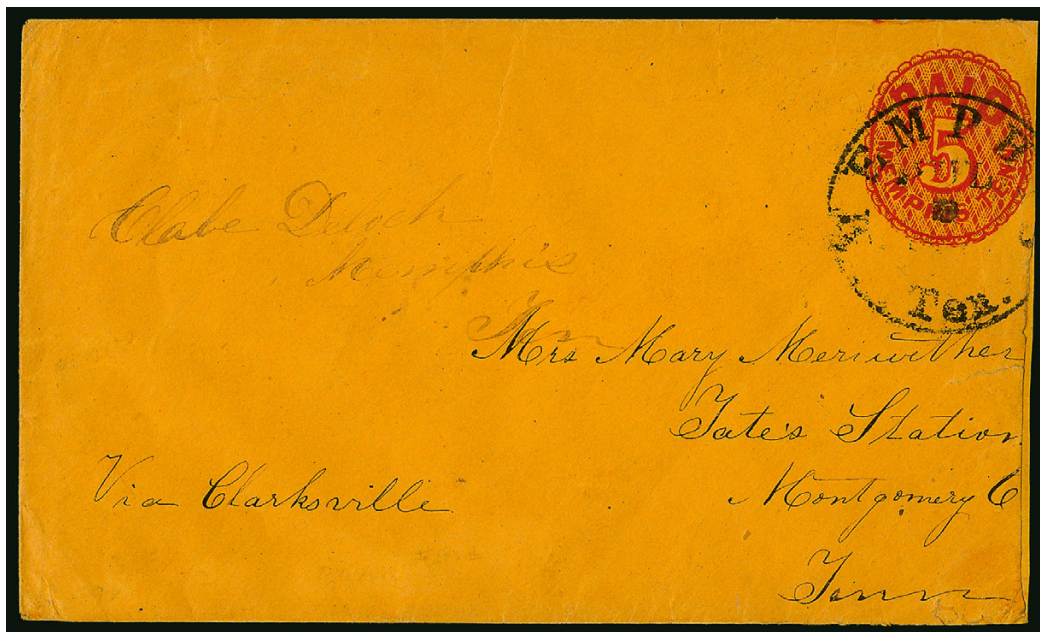 PAID
5
MEMPHIS TENN
MEMPH
JUL
Ten.
Clabe Deloch
Memphis
Ten
Mrs Mary Meriwether
Tate's Station
Montgomery C
Tenn
Via Clarksville